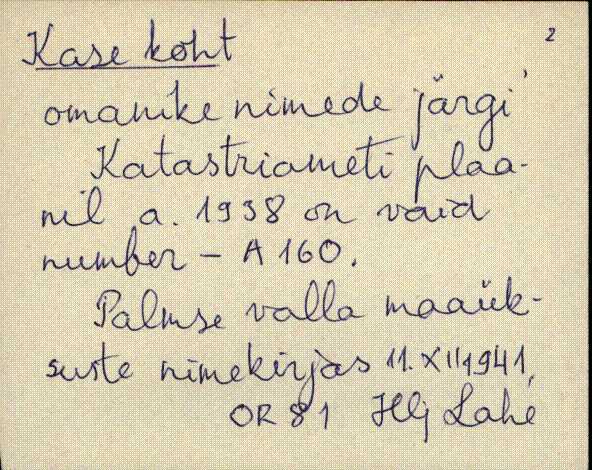 2
Kase koht
omanike nimede järgi
Katastriameti plaa-
nil a. 1938 on vaid
number – A 160.
Palmse valla maaük-
suste nimekirjas 11. XII 1941,
OR 81 Hlj Lahe